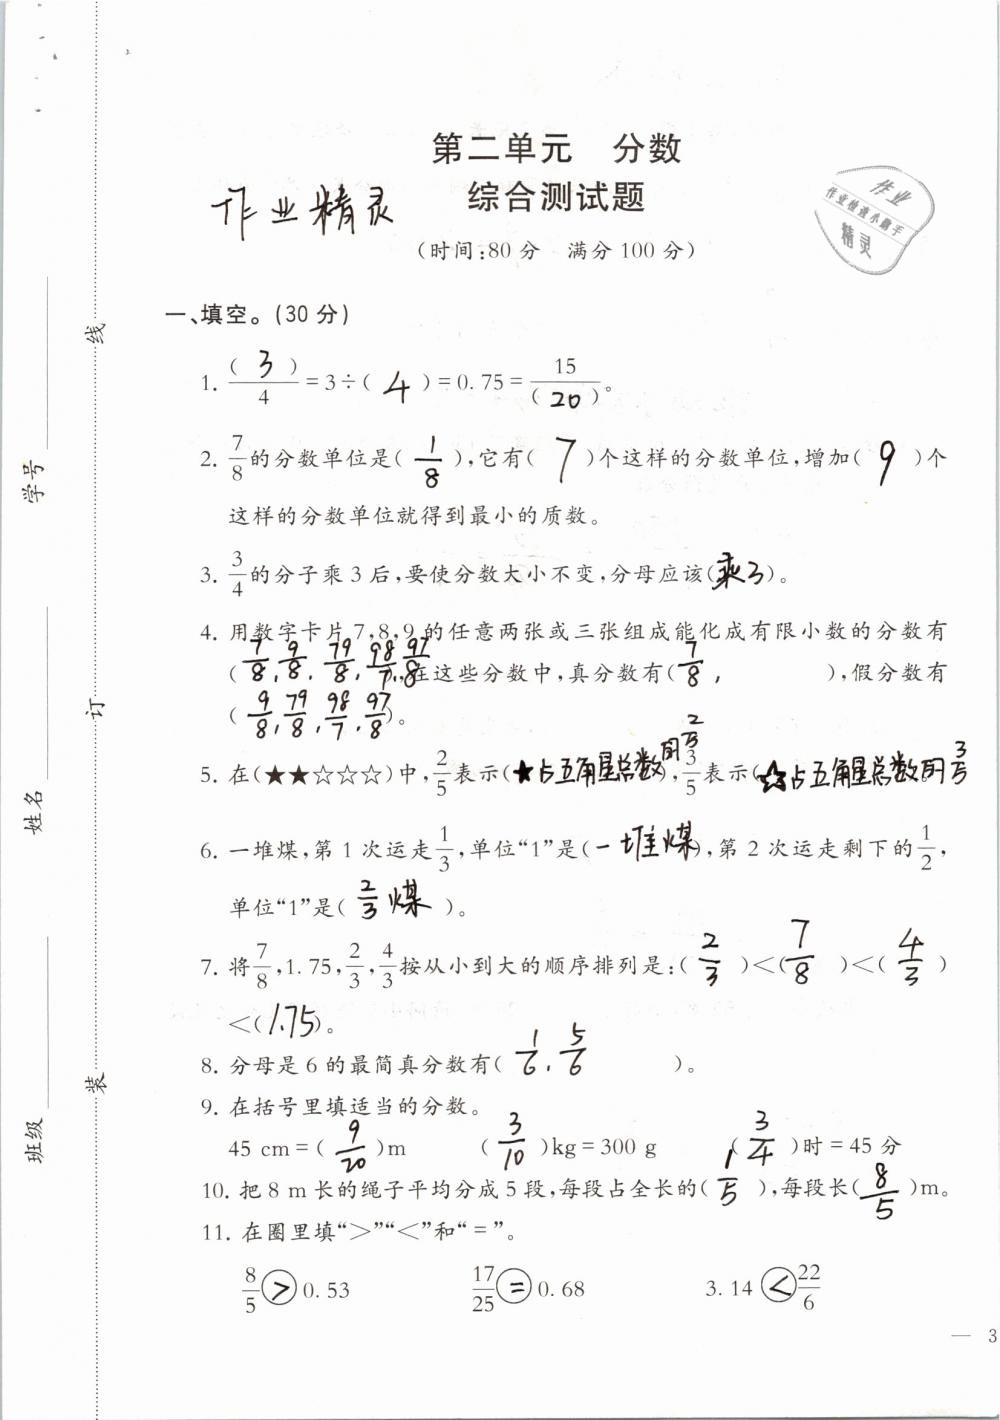 第二单元 分数
综合测试题
作业精灵
作业
作业检查小助手
精灵
(时间:80分 满分100分)
一、填空。(30分)
1. (3)/4=3÷(4)=0.75=15/(20)。
2. 7/8的分数单位是(1/8),它有(7)个这样的分数单位,增加(9)个
这样的分数单位就得到最小的质数。
3. 3/4的分子乘3后,要使分数大小不变,分母应该(乘3)。
4. 用数字卡片7,8,9的任意两张或三张组成能化成有限小数的分数有
(7/8,9/8,79/8,98/7,97/8),在这些分数中,真分数有(7/8, ),假分数有
(9/8,79/8,98/7,97/8)。
5. 在(★★☆☆☆)中,2/5表示(★占五角星总数的2/5),3/5表示(☆占五角星总数的3/5
6. 一堆煤,第1次运走1/3,单位“1”是(一堆煤),第2次运走剩下的1/2,
单位“1”是(2/3煤)。
7. 将7/8,1.75,2/3,4/3按从小到大的顺序排列是:(2/3)<(7/8)<(4/3)
<(1.75)。
8. 分母是6的最简真分数有(1/6,5/6)。
9. 在括号里填适当的分数。
45 cm=(9/20)m (3/10)kg=300 g (3/4)时=45分
10. 把8 m长的绳子平均分成5段,每段占全长的(1/5),每段长(8/5)m。
11. 在圈里填“>”“<”和“=”。
8/5>0.53 17/25=0.68 3.14<22/6
学号
姓名
班级
线
订
装
— 3